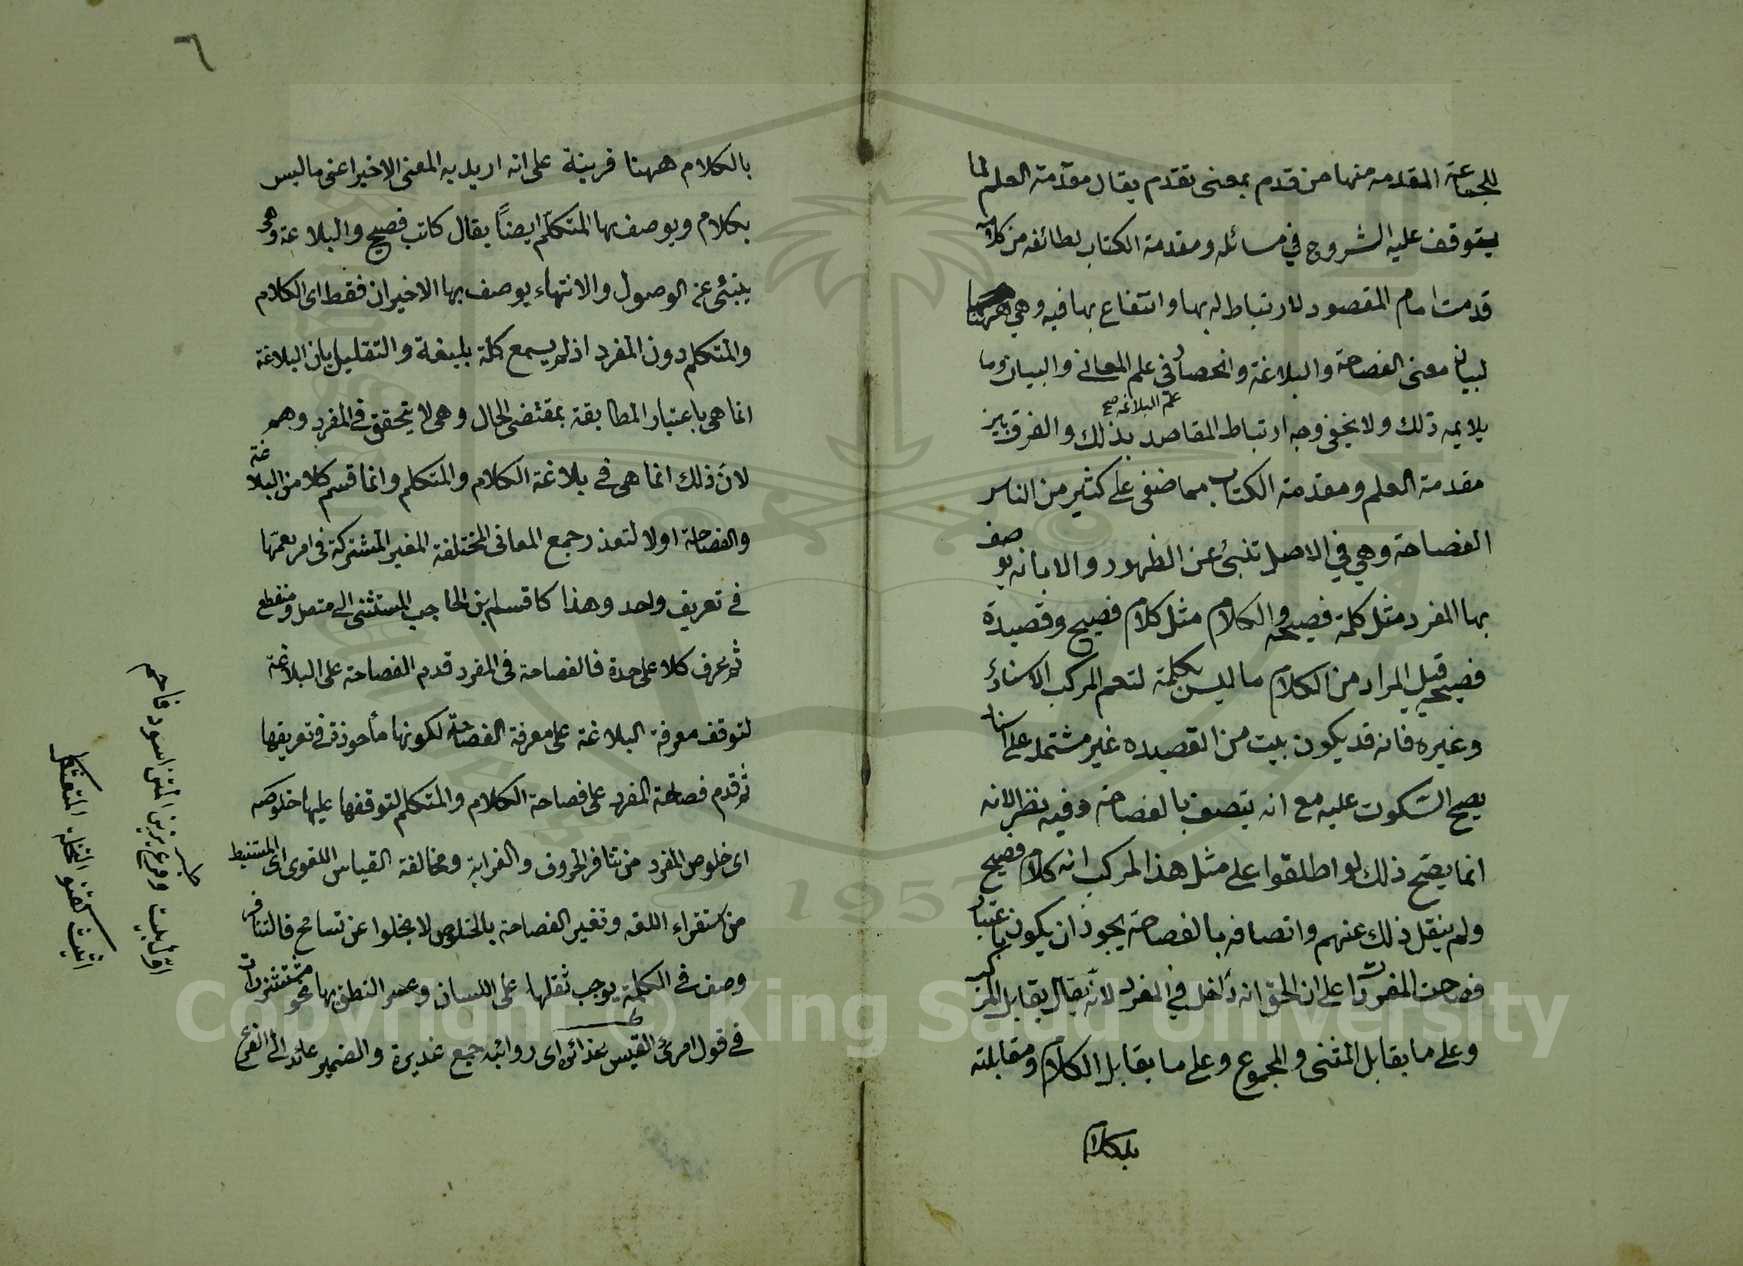 للجماعة المقدمه منها من قدم بمعنى تقدم يقال مقدمة العلم لما
يتوقف عليه الشروع في مسائله ومقدمة الكتاب لطائفه من كلامه
قدمت امام المقصود لارتباط له بها وانتفاع بها فيه وهي ههنا
لبيان معنى الفصاحة والبلاغة وانحصار في علم المعاني والبيان وما
علم البلاغة صح
يلايمه ذلك ولا يخفى وجه ارتباط المقاصد بذلك والفرق بين
مقدمة العلم ومقدمة الكتاب مما خفى على كثير من الناس
الفصاحة وهي في الاصل تنبئ عن الظهور والابانه يوصف
بها المفرد مثل كلمة فصيحة والكلام مثل كلام فصيح وقصيدة
فصيحة قيل المراد من الكلام ما ليس بكلمة لتعم المركب الاسنادي
وغيره فانه قد يكون بيت من القصيده غير مشتمل على اسناد
يصح السكوت عليه مع انه يتصف بالفصاحة وفيه نظر لانه
انما يصح ذلك لو اطلقوا على مثل هذا المركب انه كلام فصيح
ولم ينقل ذلك عنهم واتصافه بالفصاحة يجوز ان يكون باعتبار
فصاحت المفردات على ان الحق انه داخل في المفرد لانه يقال يقابل المركب
وعلى ما يقابل المثنى والمجموع وعلى ما يقابل الكلام ومقابلته
بالكلام
٦
بالكلام ههنا قرينة على انه اريد به المعنى الاخير اعنى ما ليس
بكلام ويوصف بها المتكلم ايضاً يقال كاتب فصيح والبلاغة وهى
ينبئ عن الوصول والانتهاء يوصف بها الاخيران فقط اى الكلام
والمتكلم دون المفرد اذ لم يسمع كلمة بليغة والتقليل بان البلاغة
انما هى باعتبار المطابقة بمقتضى الحال وهى لا يتحقق في المفرد وهم
لان ذلك انما هى في بلاغة الكلام والمتكلم وانما قسم كلا من البلاغة
والفصاحة اولا لتعذر جمع المعانى المختلفة الغير المشتركة في امر يعمها
في تعريف واحد وهذا كما قسم ابن الحاجب المستثنى الى متصل ومنقطع
ثم عرف كلا على حدة فالفصاحة في المفرد قدم الفصاحة على البلاغة
لتوقف معرفة البلاغة على معرفة الفصاحة لكونها مأخوذة في تعريفها
ثم قدم فصاحة المفرد على فصاحة الكلام والمتكلم لتوقفها عليها خلوصه
اى خلوص المفرد من تنافر الحروف والغرابة ومخالفة القياس اللغوى اى المستنبط
من استقراء اللغه وتفسير الفصاحة بالخلوص لا يخلوا عن تسامح فالتنافر
وصف في الكلمة يوجب ثقلها على اللسان وعسر النطق بها نحو مستشزرات
في قول امرئ القيس غدائره اى روائبه جمع غديرة والضمير عائد الى الفرع
اول بيت وفرع يزين المتن اسود فاحم
اثيث كقنو النخلة المتعثكل
Copyright © King Saud University
1957